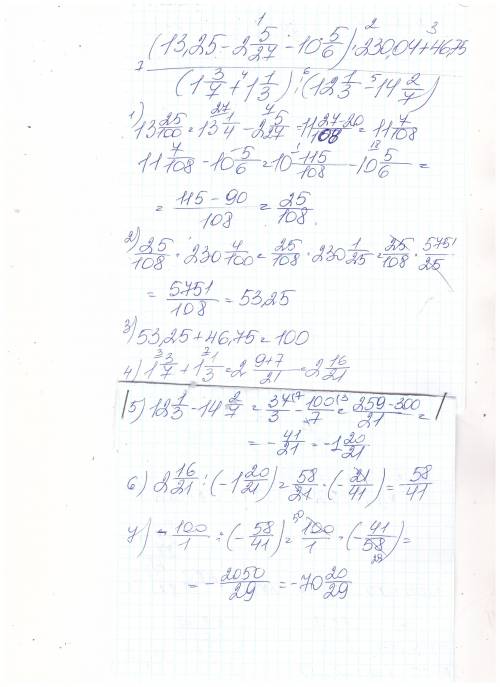 (13,25 - 2 5/27 - 10 5/6) · 230,04 + 46,75
(1 3/7 + 1 1/3) : (12 1/3 - 14 2/7)
1) 13 25/100 = 13 1/4 - 2 5/27 = 11 27-20/108 = 11 7/108
11 7/108 - 10 5/6 = 10 115/108 - 10 5/6 =
= 115 - 90/108 = 25/108.
2) 25/108 · 230 4/100 = 25/108 · 230 1/25 = 25/108 · 5751/25
= 5751/108 = 53,25
3) 53,25 + 46,75 = 100
4) 1 3/7 + 1 1/3 = 2 9+7/21 = 2 16/21
5) 12 1/3 - 14 2/7 = 34/3 - 100/7 = 259-300/21 =
= - 41/21 = -1 20/21
6) 2 16/21 : (-1 20/21) = 58/21 · (- 21/41) = 58/41
7) - 100/1 : (- 58/41) = 100/1 · (- 41/58) =
= - 2050/29 = -70 20/29